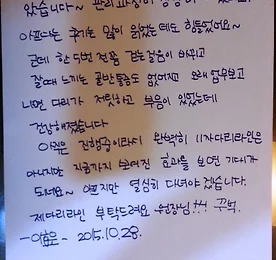 았습니다~ 관리
아프다는 후기는 많이 읽었는데도 힘들었어요~
근데 한 5번 전쯤 걷는걸음이 바뀌고
잘때 느끼는 골반통증도 없어졌고 오래 업무보고
나면 다리가 저릿하고 부음이 있었는데
건강해졌습니다
아직은 진행중이라서 완벽히 11자다리라인은
아니지만 지금까지 보여진 효과를 보면 기대가
되네요~ 아프지만 열심히 다녀야겠습니다.
제다리라인 부탁드려요 원장님!!! 꾸벅.
2015.10.28.